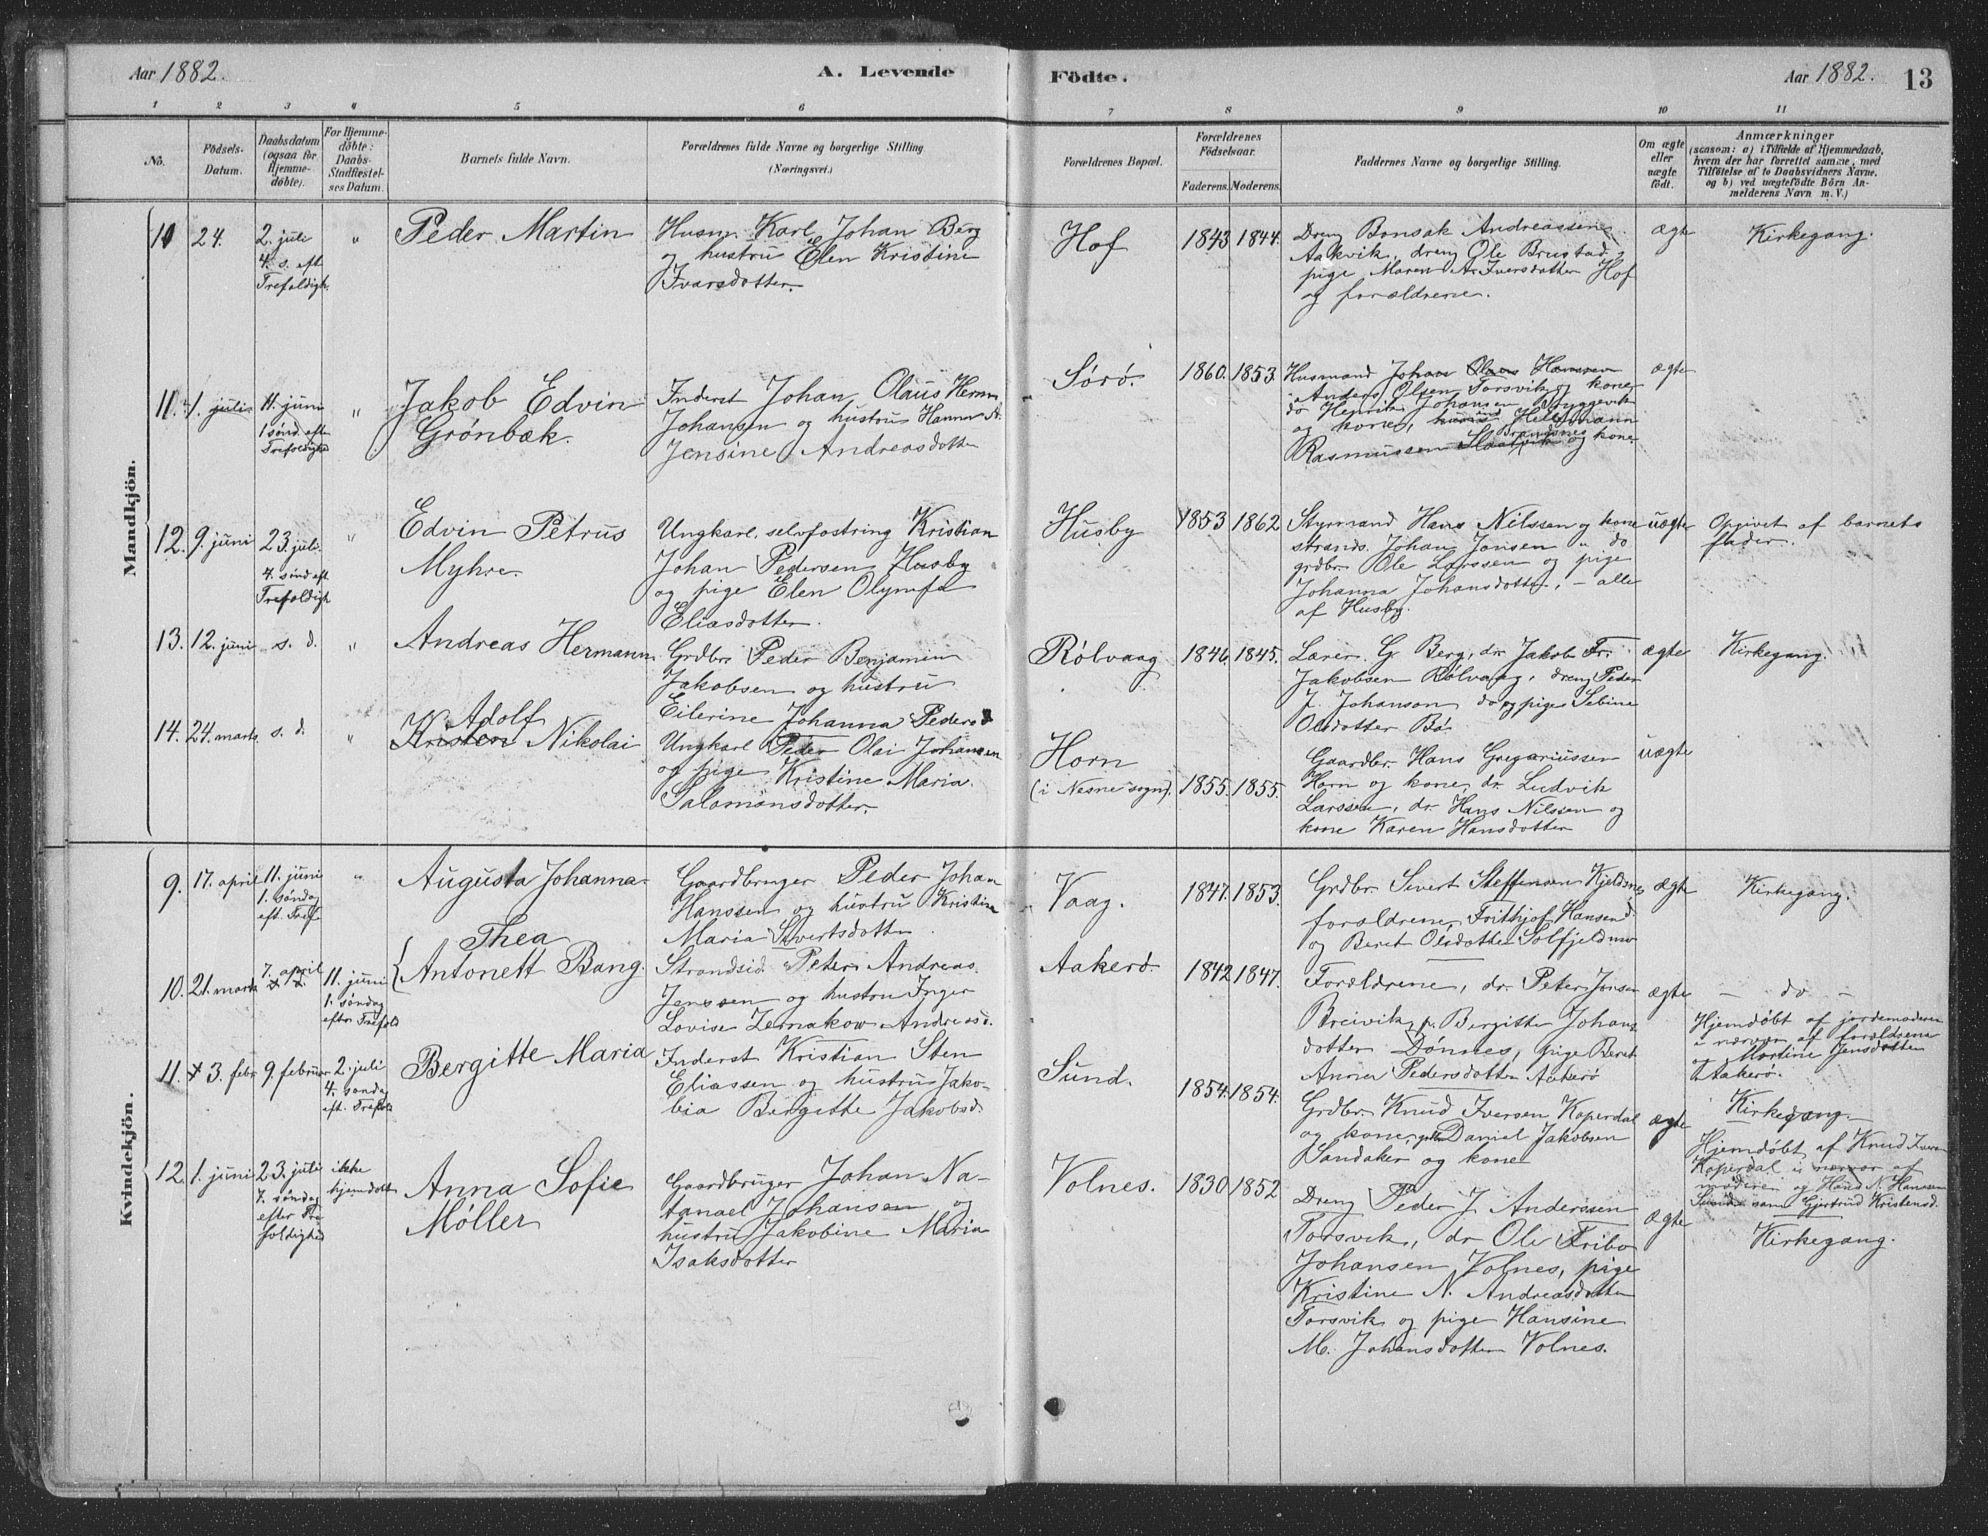 Aar 1882.
A. Levende
Födte.
Aar 1882.
13
1 2 3 4 5 6 7 8 9 10 11
No.
Födsels-
Datum.
Daabsdatum
(ogsaa for
Hjemme-
döbte).
For Hjemme-
döbte:
Daabs-
Stadfæstel-
ses Datum.
Barnets fulde Navn.
Forældrenes fulde Navne og borgerlige Stilling
(Næringsvei.)
Forældrenes Bopæl.
Forældrenes
Födselsaar.
Faderens.
Moderens.
Faddernes Navne og borgerlige Stilling.
Om ægte
eller
uægte
födt.
Anmærkninger
(saasom: a) i Tilfælde af Hjemmedaab,
hvem der har forrettet samme, med
Tilföielse af to Daabsvidners Navne,
og b) ved uægtefödte Börn An-
melderens Navn m. V.)
Mandkjön.
10
24.
2. juli
4. s. eft
Trefoldigh.
"
Peder Martin
Husm. Karl Johan Berg
og hustru Elen Kristine
Ivarsdotter.
Hof
1843
1844.
Dreng Bonsak Andreassen
Aakvik, dreng Ole Brustad,
pige Maren A. Iversdotter Hof
og forældrene.
ægte
Kirkegang.
11.
1. juli
11. juni
1 sønd. eft
Trefoldigh
"
Jakob Edvin
Grönbæk.
Inderst Johan Olaus Herm.
Johansen og hustru Hanna A.
Jensine Andreasdotter
Sörö.
1860.
1853.
Husmand Johan Olaus Hansen
Anders Olsen Torsvik og kone
do Henrik Johansen Bryggevik
og kone, Helgemann
Brandsnes
Rasmussen og kone.
ægte
12.
9. juni
23. juli
7. sönd eft
Trefoldigh
"
Edvin Petrus
Myhre.
Ungkarl, selvfostring Kristian
Johan Pedersen Husby
og pige Elen Olymfa
Eliasdotter.
Husby
1853
1862
Styrmand Hans Nilssen og kone
strands. Johan Jonsen " do
grdbr. Ole Larssen og pige
Johanna Johansdotter, - alle
af Husby.
uægte
Opgivet af barnets
fader.
13.
12. juni
s. d.
"
Andreas Hermann
Grdbr. Peder Benjamin
Jakobsen og hustru
Eilerine Johanna Pedersd
Rölvaag
1846
1845.
Lærer G. Berg, dr. Jakob Fr.
Jakobsen Rölvaag, dreng Peder
J. Johanson do og pige Sebine
Olsdotter Bö
ægte
Kirkegang.
14.
24. marts
s. d.
"
Adolf
Kristen Nikolai
Ungkarl Peder Olai Johansen
og pige Kristine Maria
Salamonsdotter.
Horn
(i Nesne sogn).
1855.
1855.
Gaardbr. Hans Gregariussen
Horn og kone, dr. Ludvik
Larssen, dr. Hans Nilssen og
kone Karen Hansdotter
uægte
Kvindekjön.
9.
17. april
11. juni
1. søndag
eft. Tref
"
Augusta Johanna
Gaardbruger Peder Johan
Hanssen og hustru Kristine
Maria Sivertsdotter
Vaag.
1847.
1853.
Grdbr. Sivert Steffensen Kjeldsnes
forældrene, Frithjof Hansen
og Beret Olsdotter Solfjeldmo
ægte
Kirkegang.
10.
21. marts
7. april
11. juni
1. søndag
efter Trefold
Thea
Antonett Bang.
Strandsid. Peter Andreas
Jenssen og hustru Inger
Lovise Zernakow Andreasd.
Aakerö.
1842
1847.
Forældrene, dr. Peter Jonsen
Breivik, p. Bergitte Johans
dotter Dönnes, pige Beret
Anna Pedersdotter Aakerö
ægte
- do -
Hjemdöbt af jordemoderen
i nærvær af forældrene
og Martine Jensdotter
Aakerö.
11.
3. febr.
9. februar
2. juli
4. søndag
eft. Trefold
Bergitte Maria
Inderst Kristian Sten
Eliassen og hustru Jako-
bia Bergitte Jakobsd.
Sund.
1854.
1854.
Grdbr. Knud Iversen Koperdal
og kone, Daniel Jakobsen
Sandaker og kone
ægte
Kirkegang.
Hjemdöbt af Knud Ivers
Koperdal i nærvær af
moderen og Hans N. Hanssen
Sund samt Gjertrud Kristensd.
12.
1. juni
23. juli
7. søndag
efter Tre
foldighed
ikke
hjemdöbt
Anna Sofie
Möller
Gaardbruger Johan Na-
tanael Johansen og
hustru Jakobine Maria
Isaksdotter
Volnes.
1830
1852
Dreng Peder J. Anderssen
Torsvik, dr. Ole Tribo
Johansen Volnes, pige
Kristine N. Andreasdotter
Torsvik og pige Hansine
M. Johansdotter Volnes.
ægte
Kirkegang.